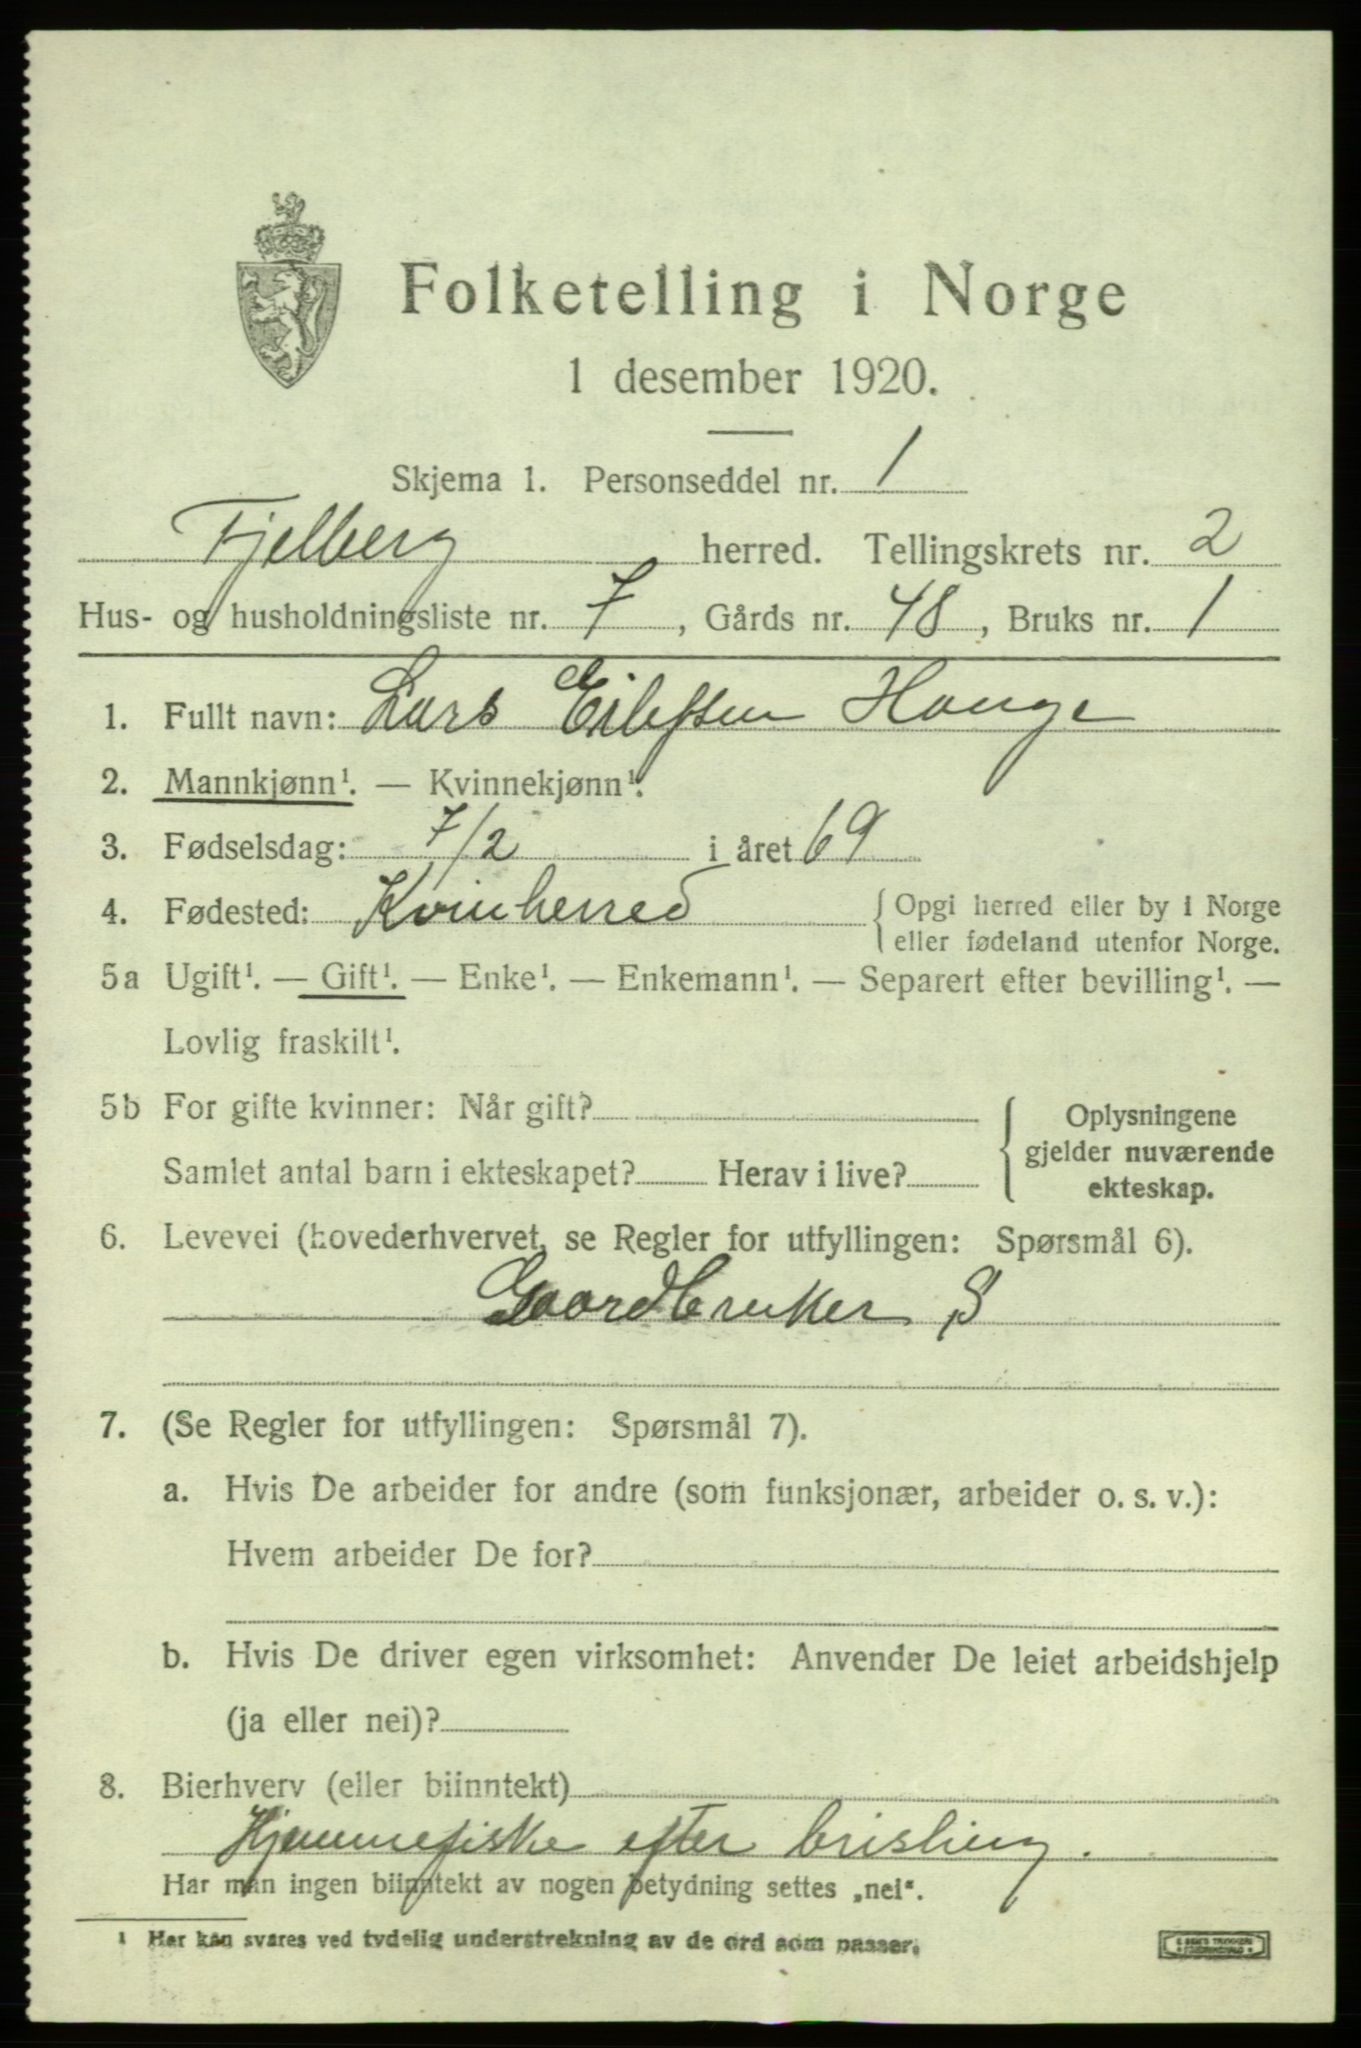 Folketelling i Norge
1 desember 1920.
Skjema 1. Personseddel nr. 1
Fjelberg herred. Tellingskrets nr. 2
Hus- og husholdningsliste nr. 7, Gårds nr. 48, Bruks nr. 1
1. Fullt navn: Lars Eilefsen Hauge
2. Mannkjønn¹. — Kvinnekjønn¹.
3. Fødselsdag: 7/2 i året 69
4. Fødested: Kvinherred { Opgi herred eller by i Norge
eller fødeland utenfor Norge.
5a Ugift¹. — Gift¹. — Enke¹. — Enkemann¹. — Separert efter bevilling¹. —
Lovlig fraskilt¹.
5b For gifte kvinner: Når gift?
Samlet antal barn i ekteskapet? Herav i live?
{ Oplysningene
gjelder nuværende
ekteskap.
6. Levevei (hovederhvervet, se Regler for utfyllingen: Spørsmål 6).
Gaardbruker S
7. (Se Regler for utfyllingen: Spørsmål 7).
a. Hvis De arbeider for andre (som funksjonær, arbeider o. s. v.):
Hvem arbeider De for?
b. Hvis De driver egen virksomhet: Anvender De leiet arbeidshjelp
(ja eller nei)?
8. Bierhverv (eller biinntekt)
Hjemmefiske efter brisling.
Har man ingen biinntekt av nogen betydning settes „nei“.
¹ Her kan svares ved tydelig understrekning av de ord som passer.